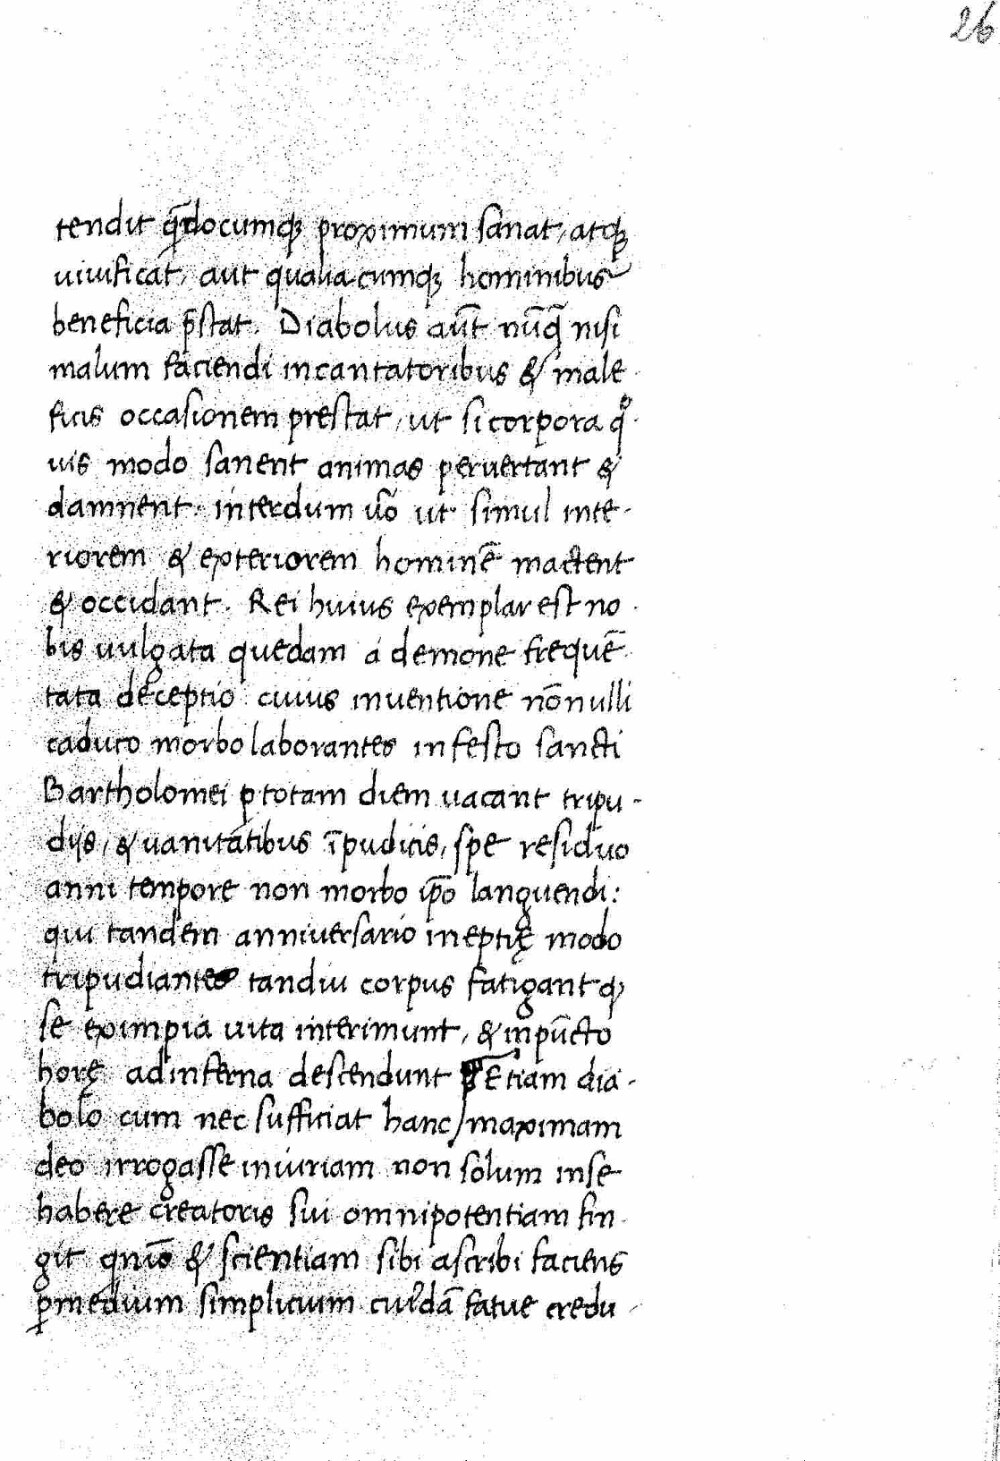 26
tendit qñdocumqꝫ proximum sanat, atqꝫ
uiuificat, aut qualiacumqꝫ hominibus
beneficia p̄stat. Diabolus aut̄ nūq̄ nisi
malum faciendi incantatoribus & male-
ficis occasionem prestat, ut si corpora qͦ-
uis modo sanent animas peruertant &
damnent. interdum ūo ut simul inte-
riorem & exteriorem hominē mactent
& occidant. Rei huius exemplar est no-
bis uulgata quedam a demone frequē-
tata deceptio cuius inuentione nōnulli
caduco morbo laborantes in festo sancti
Bartholomei ꝑ totam diem uacant tripu-
dijs, & uanitatibus īpudicis, spe residuo
anni tempore non morbo ip̄o languendi:
qui tandem anniuersario ineptię modo
tripudiantes tandiu corpus fatigant qꝫ
se ex impia uita interimunt, & in pūcto
horę ad inferna descendunt Etiam dia-
bolo cum nec sufficiat hanc maximam
deo irrogasse iniuriam non solum in se
habere creatoris sui omnipotentiam fin-
git qnīo & scientiam sibi ascribi faciens
ꝑ medium simplicium cuiꝰdā fatue credu-